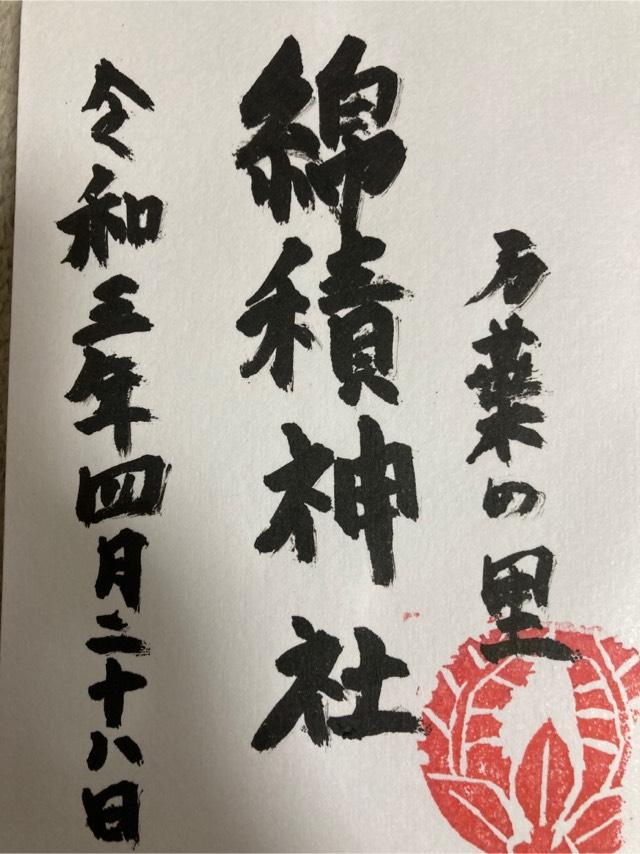 万葉の里
綿積神社
令和三年四月二十八日